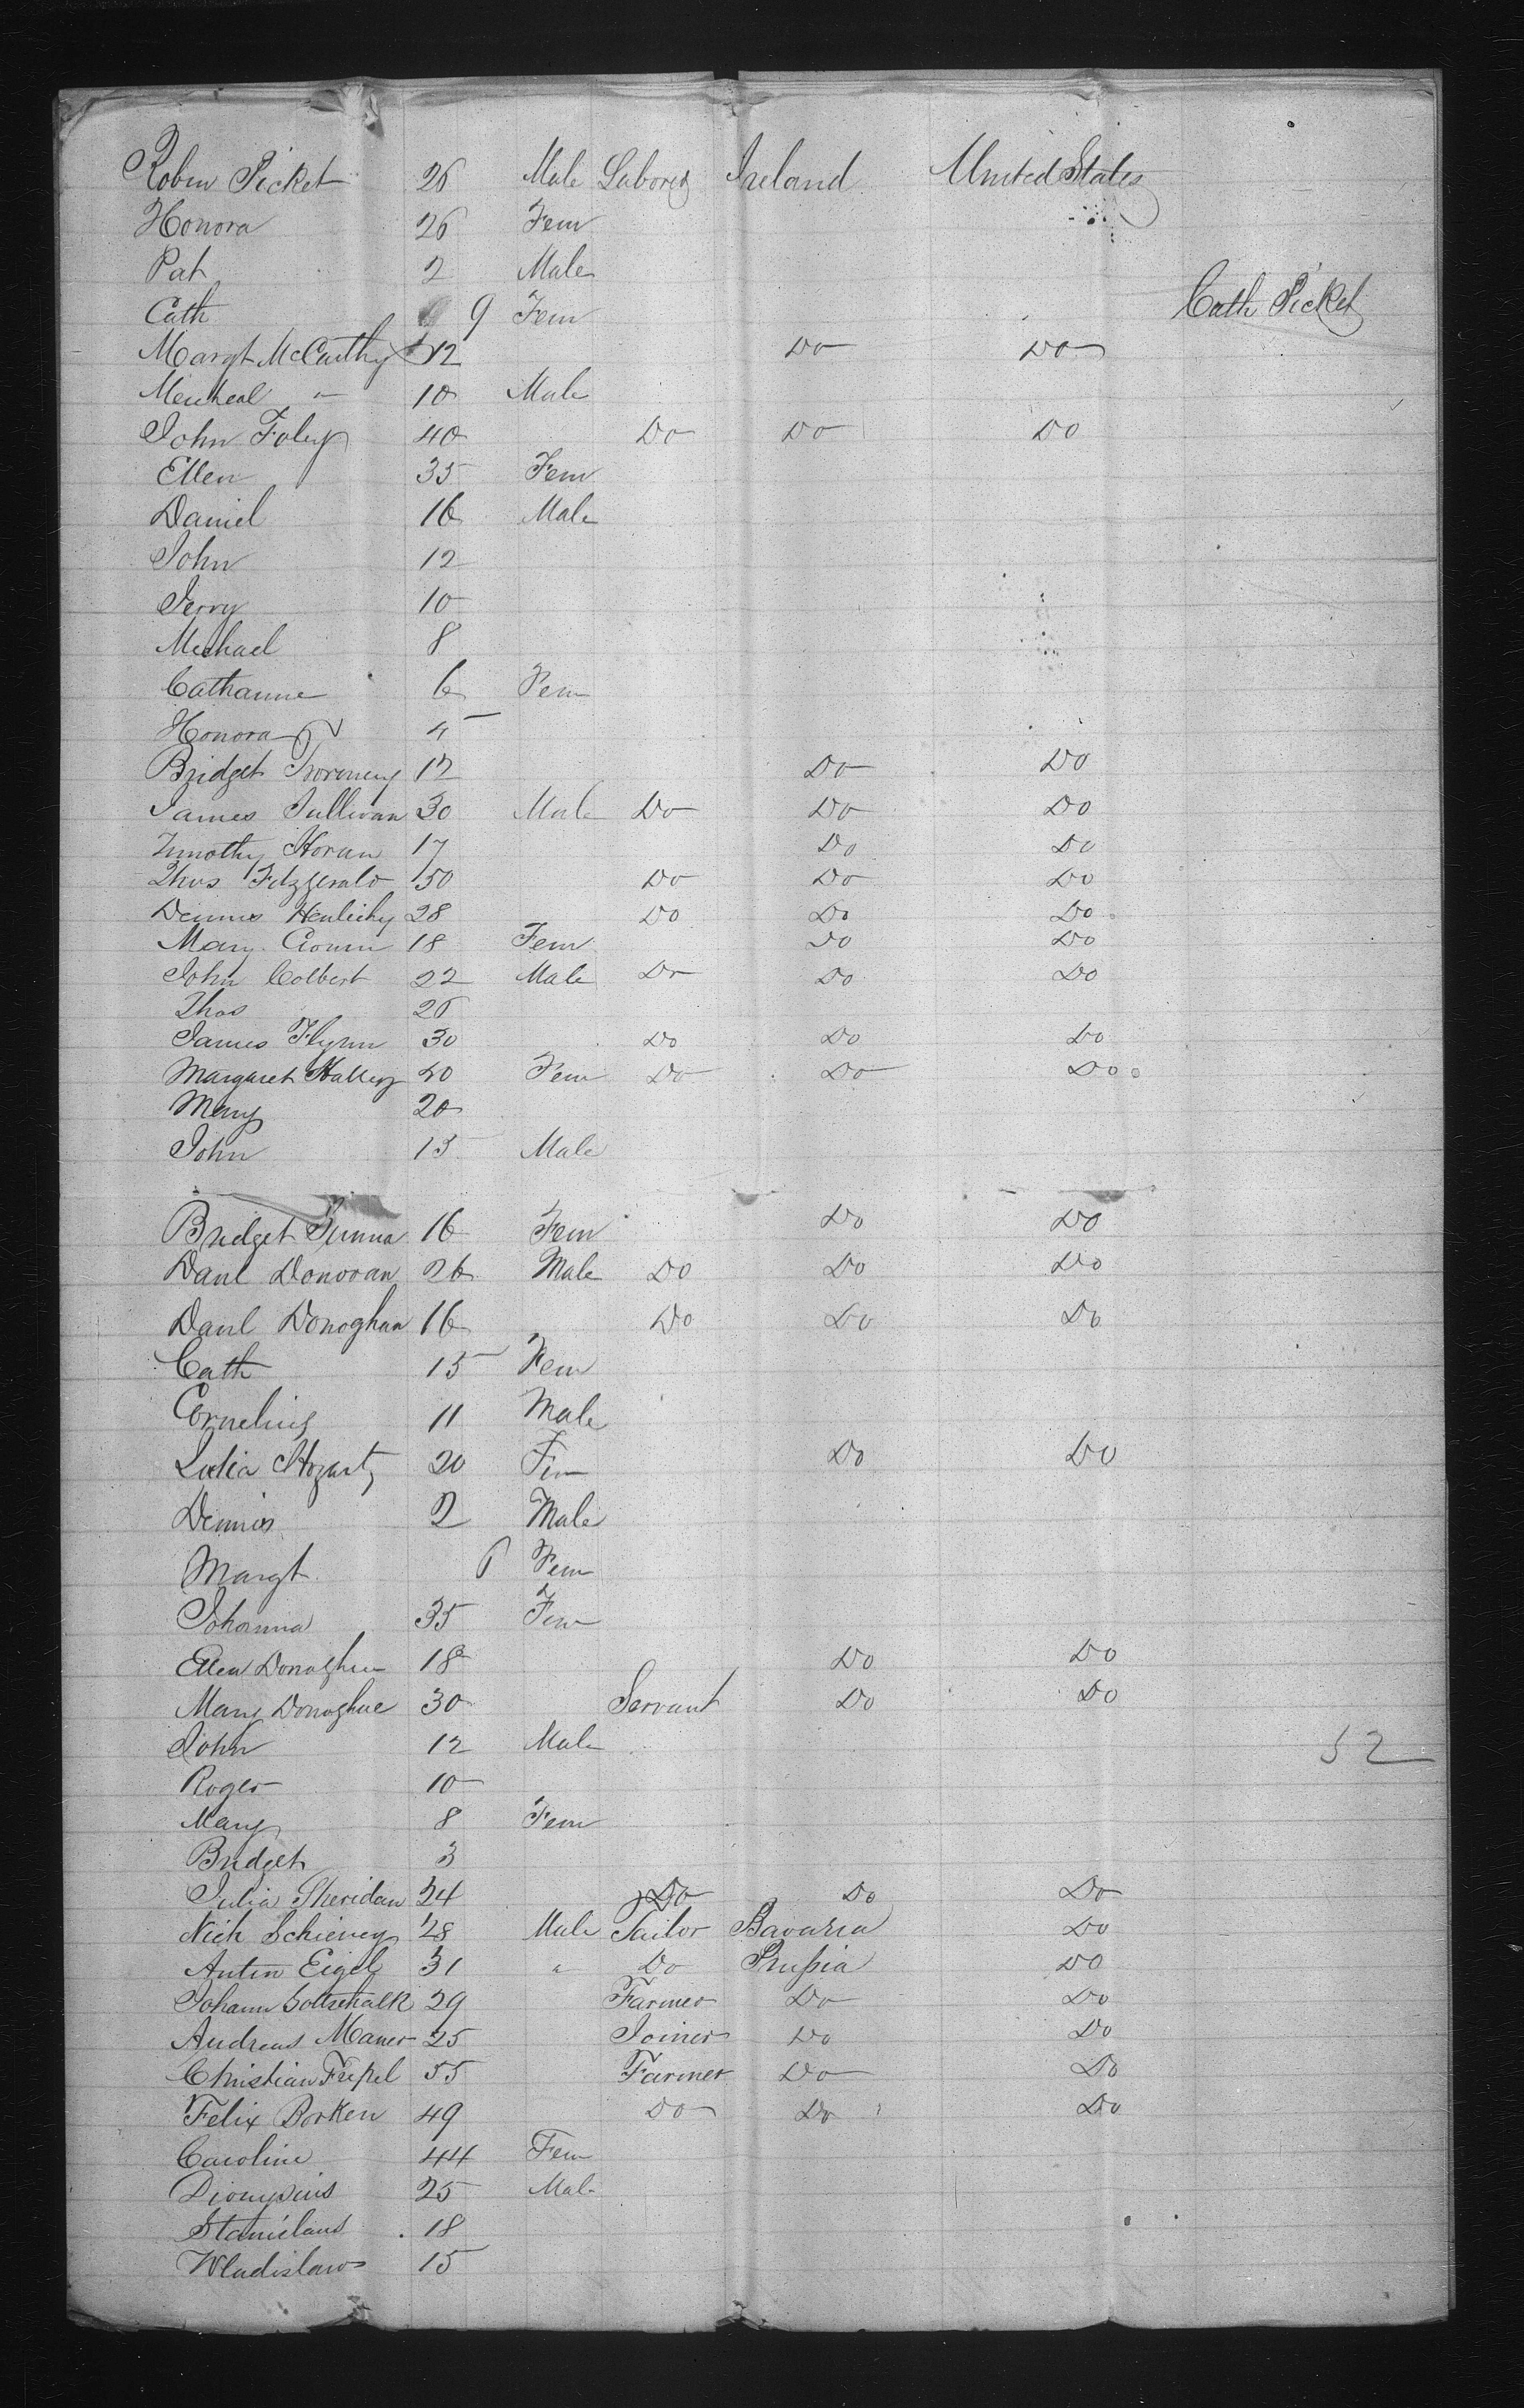 Robin Picket 26 Male Laborer Ireland United States
Honora 26 Fem
Pat 2 Male
Cath 9 Fem Cath Picket
Margt McCarthy 12 Do Do
Meicheal " 10 Male
John Foley 40 Do Do Do
Ellen 35 Fem
Daniel 16 Male
John 12
Jerry 10
Michael 8
Catharine 6 Fem
Honora 4
Bridget 12 Do Do
James Sullivan 30 Male Do Do Do
Timothy Horan 17 Do Do
Thos Fitzgerald 50 Do Do Do
Dennis 28 Do Do Do
Mary 18 Fem Do Do
John Colbert 22 Male Do Do Do
Thos 26
James Flynn 30 Do Do Do
Margaret 40 Fem Do Do Do
Mary 20
John 13 Male
Bridget 16 Fem Do Do
Danl Donovan 26 Male Do Do Do
Danl Donoghan 16 Do Do Do
Cath 15 Fem
Cornelius 11 Male
20 Fem Do Do
Dennis 2 Male
Margt 6 Fem
Johanna 35 Fem
Ellen Donoghue 18 Do Do
Mary Donoghue 30 Servant Do Do
John 12 Male 52
Roger 10
Mary 8 Fem
Bridget 3
Julia Sheridan 24 Do Do Do
Nich 28 Male Tailor Bavaria Do
Anton Eigel 31 " Do Prussia Do
Johann Gottschalk 29 Farmer Do Do
Andreas Maner 25 Joiner Do Do
Christian 55 Farmer Do Do
Felix Borken 49 Do Do Do
Caroline 44 Fem
Dionysius 25 Male
Stanislaus 18
Wladislaw 15